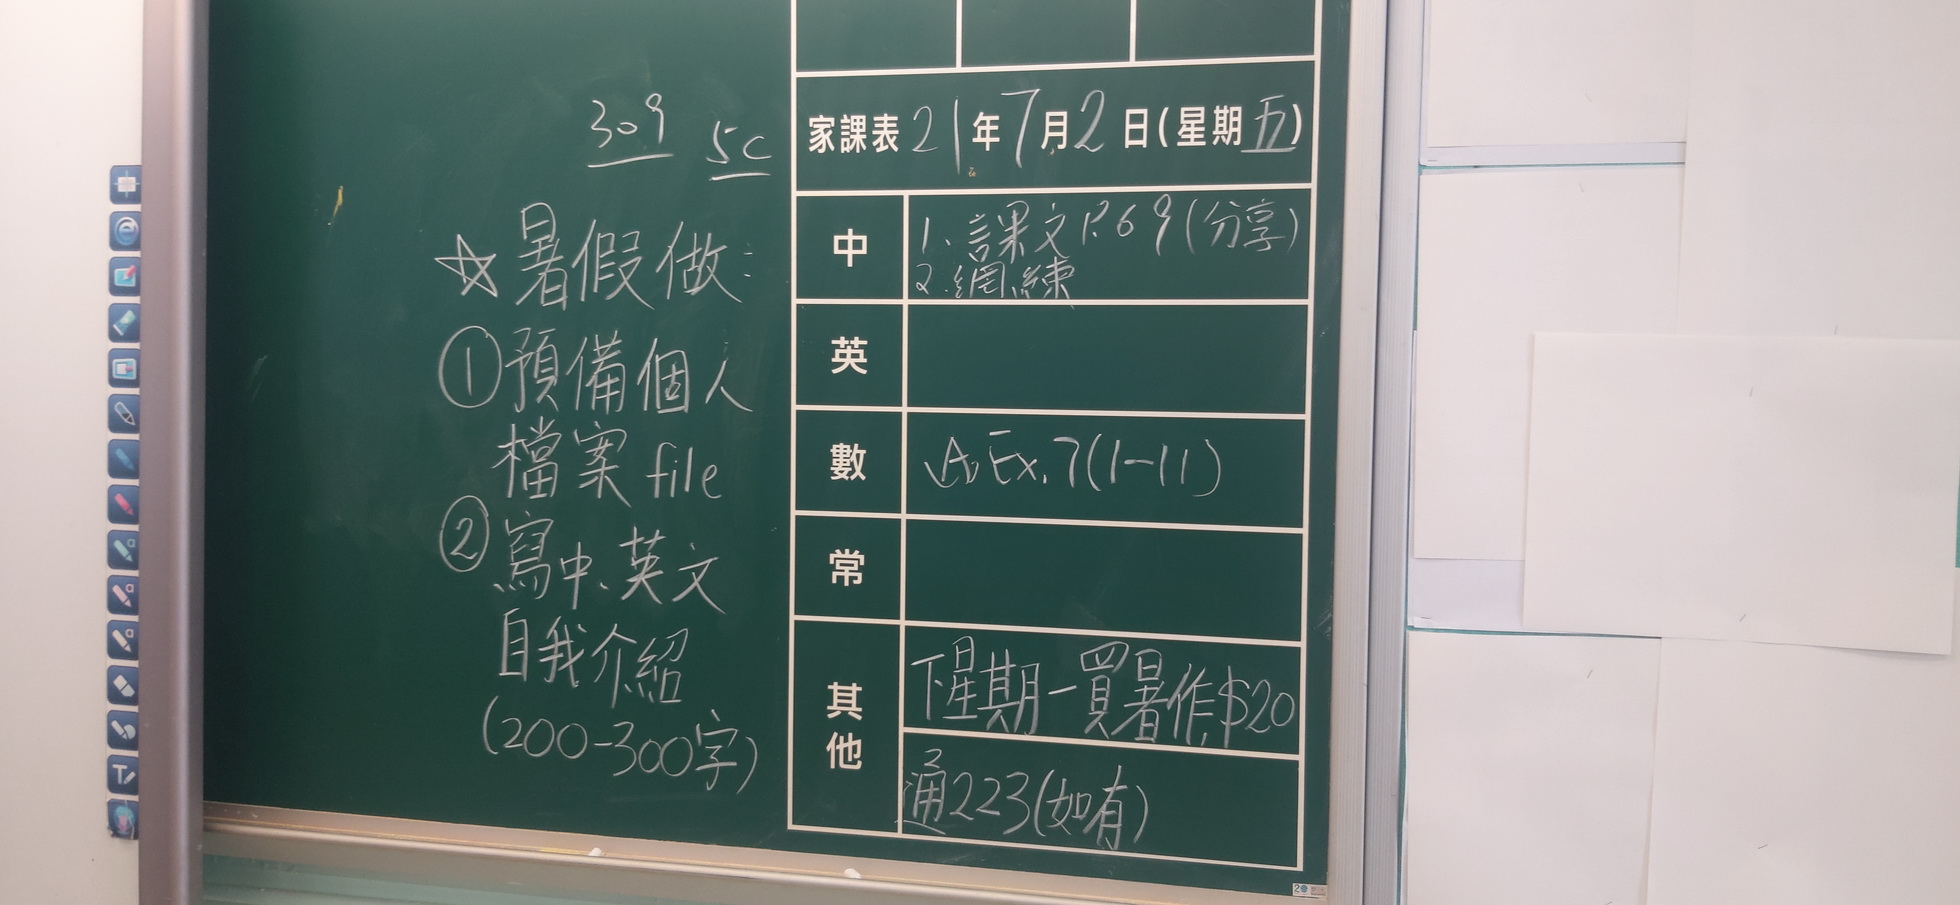 309 5C
☆暑假做：
①預備個人
檔案 file
②寫中、英文
自我介紹
(200-300字)
家課表21年7月2日(星期五)
中
1. 課文 P.69 (分享)
2. 網練
英
數
A. Ex. 7 (1-11)
常
其他
下星期一買暑作$20
通223(如有)